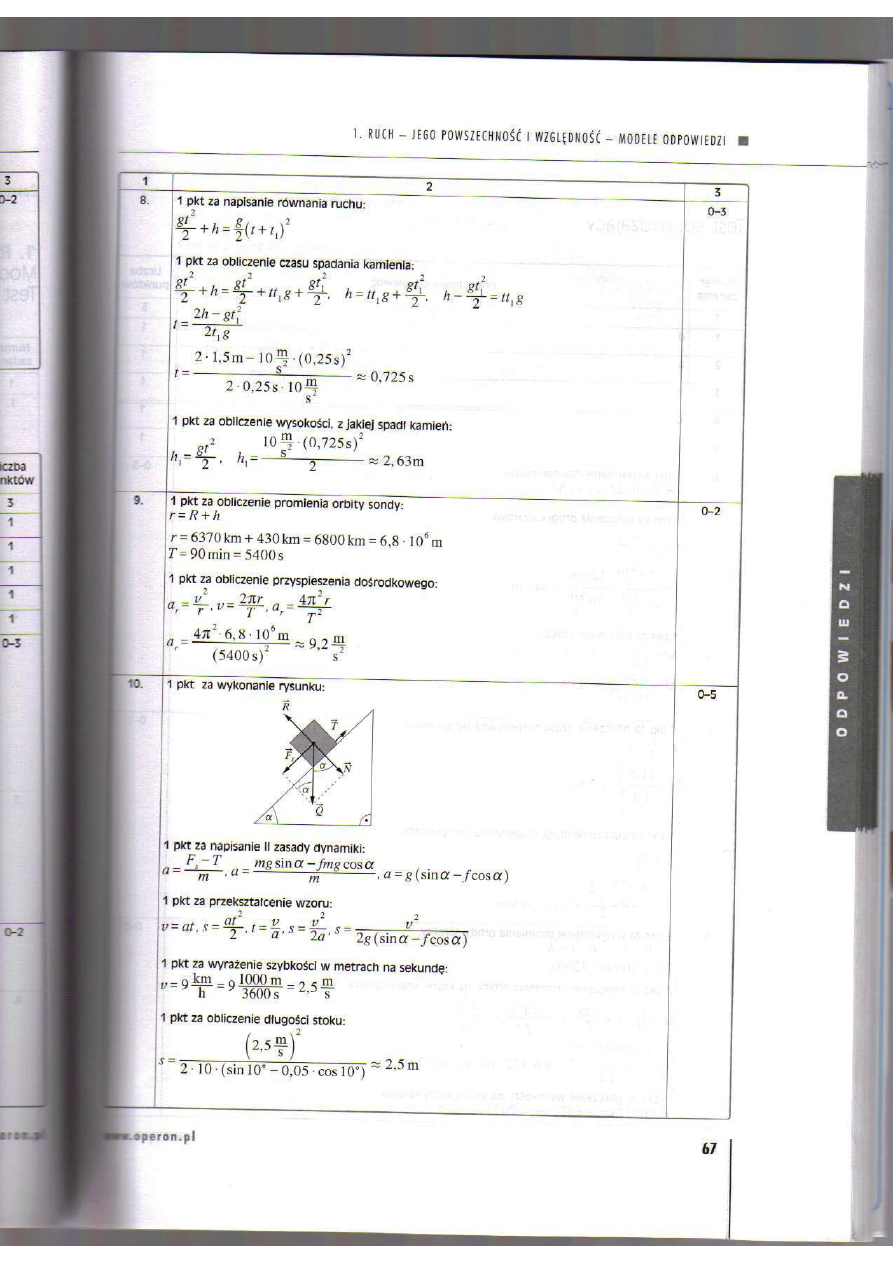 1. RUCH – JEGO POWSZECHNOŚĆ I WZGLĘDNOŚĆ – MODELE ODPOWIEDZI
3
0–2
iczba
nktów
3
1
1
1
1
1
0–3
0–2
1 2 3
8. 1 pkt za napisanie równania ruchu: 0–3
gt²/2 + h = g/2(t + t₁)²
1 pkt za obliczenie czasu spadania kamienia:
gt²/2 + h = gt²/2 + tt₁g + gt₁²/2, h = tt₁g + gt₁²/2, h – gt₁²/2 = tt₁g
t = (2h – gt₁²)/(2t₁g)
t = (2 · 1,5 m – 10 m/s² · (0,25 s)²)/(2 · 0,25 s · 10 m/s²) ≈ 0,725 s
1 pkt za obliczenie wysokości, z jakiej spadł kamień:
h₁ = gt²/2, h₁ = (10 m/s² · (0,725 s)²)/2 ≈ 2,63 m
9. 1 pkt za obliczenie promienia orbity sondy: 0–2
r = R + h
r = 6370 km + 430 km = 6800 km = 6,8 · 10⁶ m
T = 90 min = 5400 s
1 pkt za obliczenie przyspieszenia dośrodkowego:
aᵣ = v²/r, v = 2πr/T, aᵣ = 4π²r/T²
aᵣ = (4π² · 6,8 · 10⁶ m)/(5400 s)² ≈ 9,2 m/s²
10. 1 pkt za wykonanie rysunku: 0–5
R
T
Fₛ
α
N
α
Q
α
1 pkt za napisanie II zasady dynamiki:
a = (Fₛ – T)/m, a = (mg sin α – fmg cos α)/m, a = g (sin α – f cos α)
1 pkt za przekształcenie wzoru:
v = at, s = at²/2, t = v/a, s = v²/2a, s = v²/(2g (sin α – f cos α))
1 pkt za wyrażenie szybkości w metrach na sekundę:
v = 9 km/h = 9 1000 m/3600 s = 2,5 m/s
1 pkt za obliczenie długości stoku:
s = (2,5 m/s)²/(2 · 10 · (sin 10° – 0,05 · cos 10°)) ≈ 2,5 m
ODPOWIEDZI
www.operon.pl
67